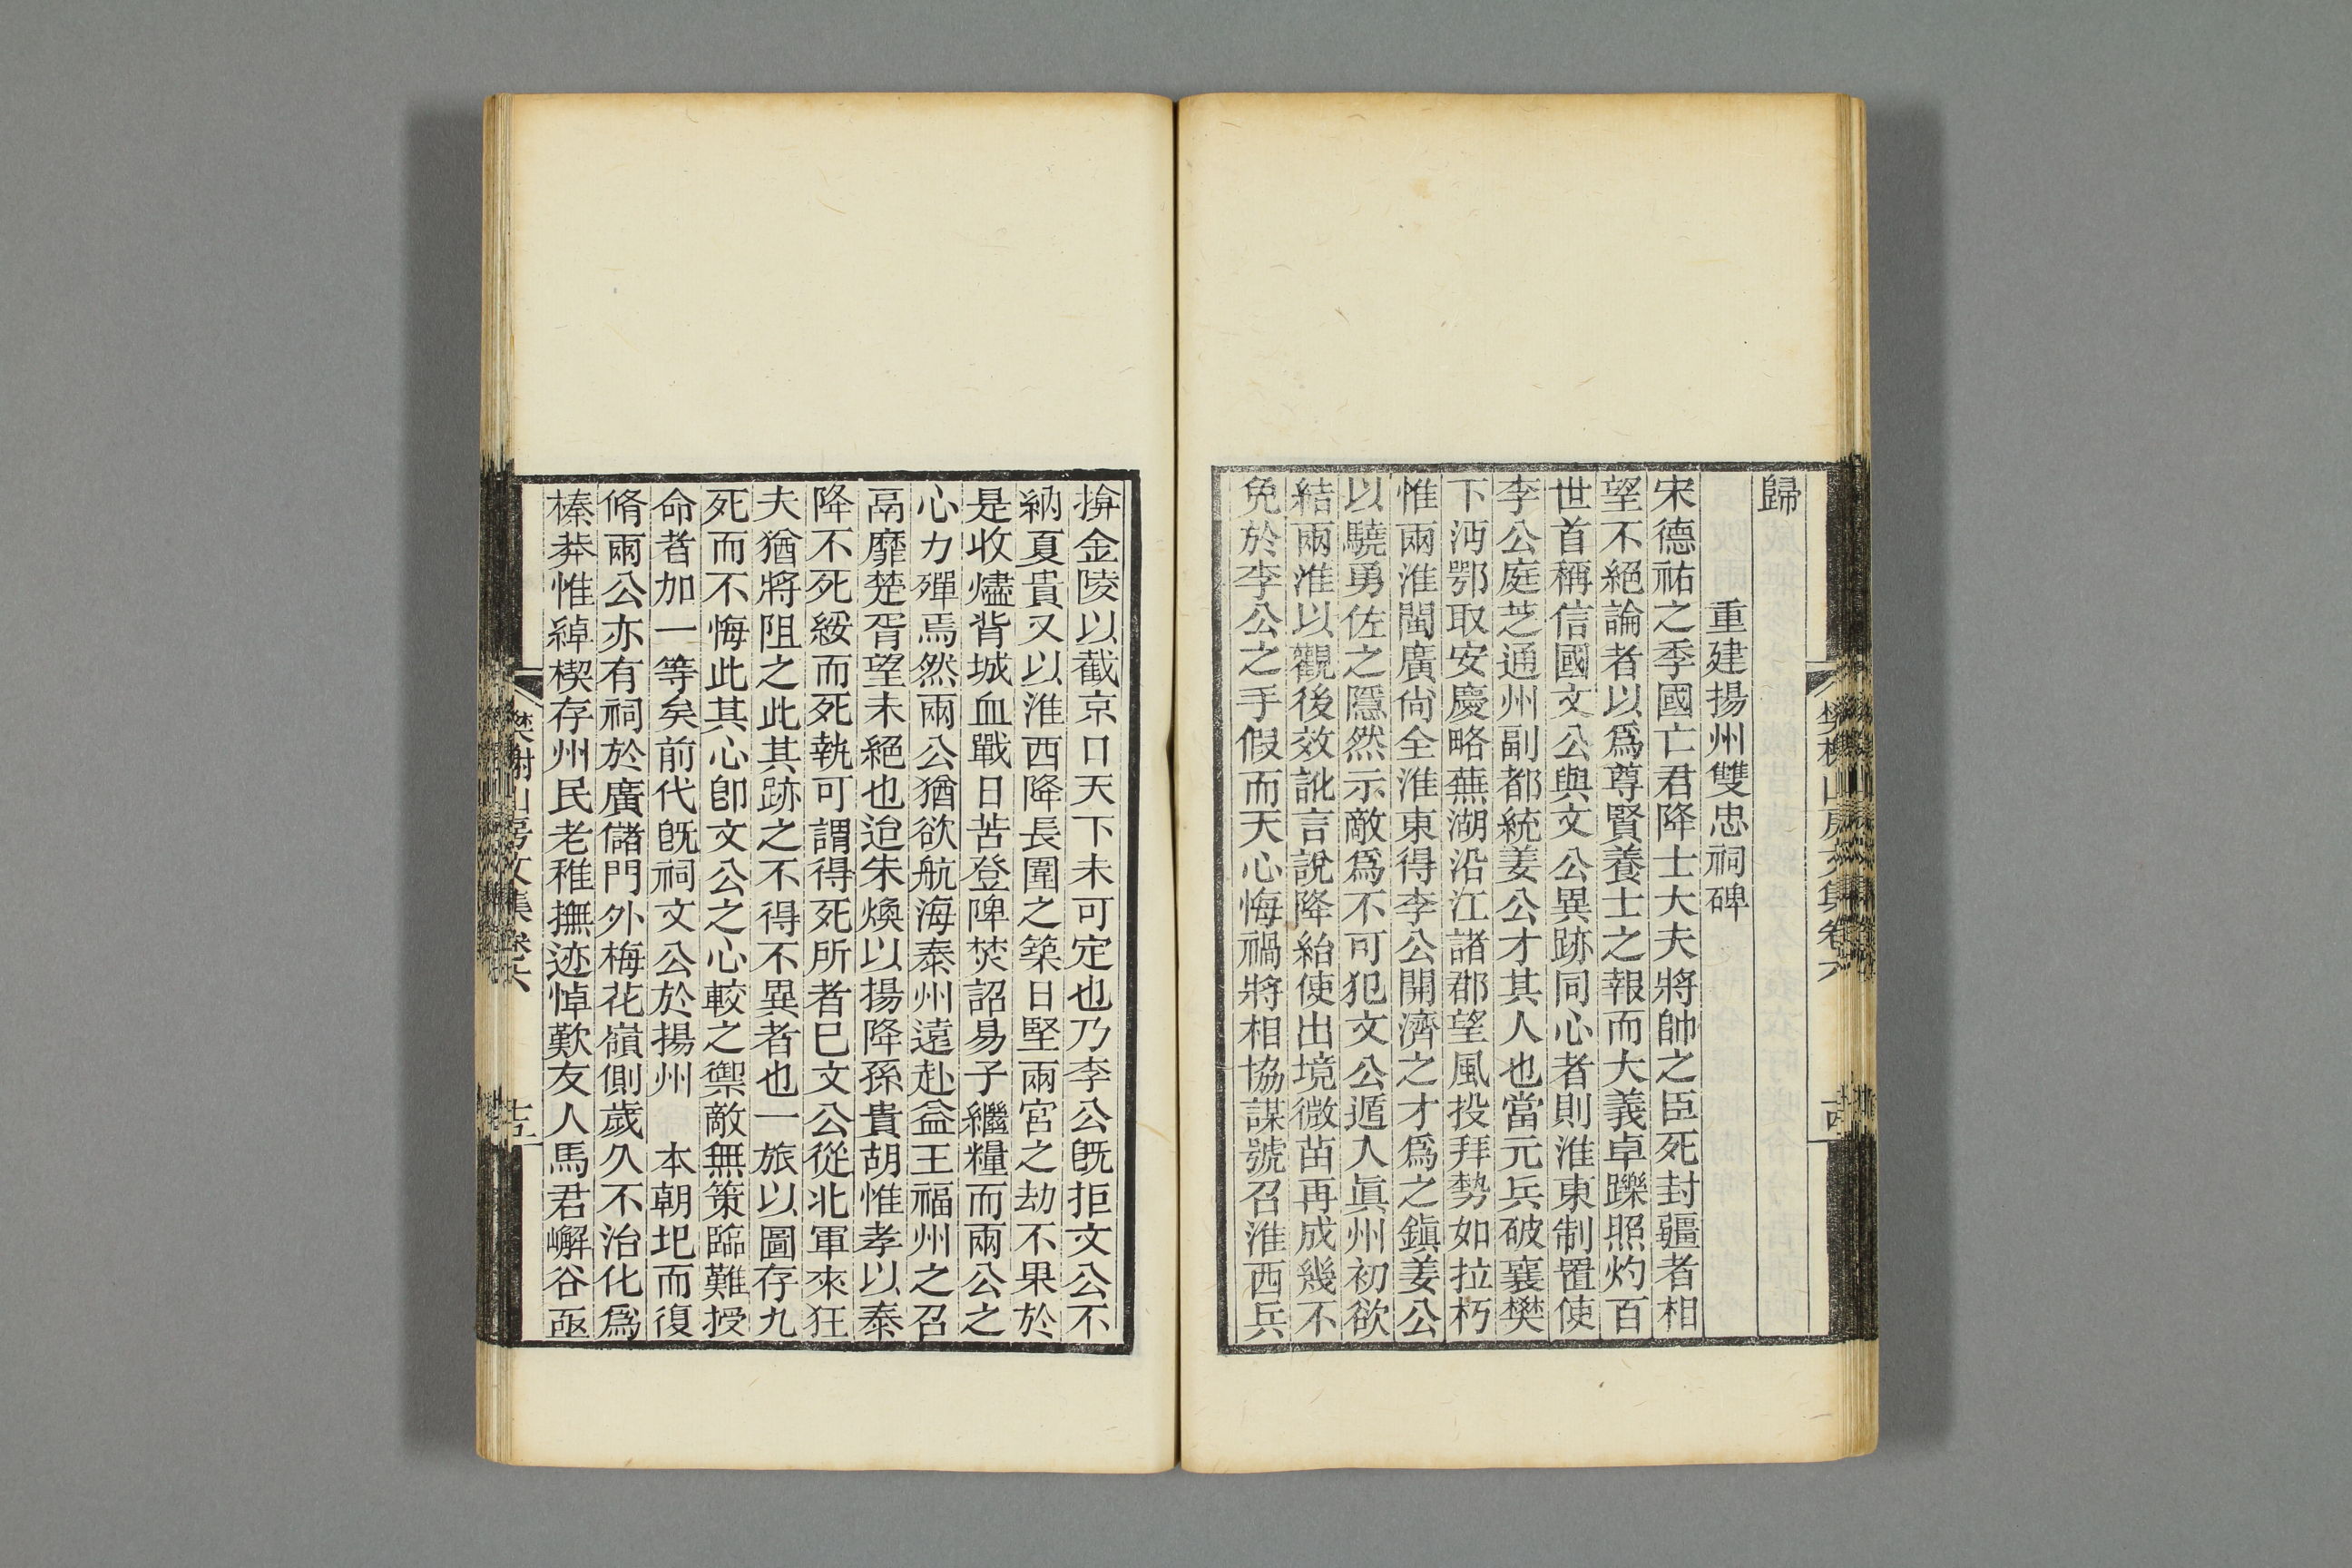 歸
重建揚州雙忠祠碑
宋德祐之季國亡君降士大夫將帥之臣死封疆者相
望不絕論者以爲尊賢養士之報而大義卓躒照灼百
世首稱信國文公與文公異跡同心者則淮東制置使
李公庭芝通州副都統姜公才其人也當元兵破襄樊
下沔鄂取安慶略蕪湖沿江諸郡望風投拜勢如拉朽
惟兩淮閩廣尙全淮東得李公開濟之才爲之鎭姜公
以驍勇佐之隱然示敵爲不可犯文公遁入眞州初欲
結兩淮以觀後效訛言說降紿使出境微苗再成幾不
免於李公之手假而天心悔禍將相協謀號召淮西兵
揜金陵以截京口天下未可定也乃李公旣拒文公不
納夏貴又以淮西降長圍之築日堅兩宮之劫不果於
是收燼背城血戰日苦登陴焚詔易子繼糧而兩公之
心力殫焉然兩公猶欲航海泰州遠赴益王福州之召
鬲靡楚胥望未絕也迨朱煥以揚降孫貴胡惟孝以泰
降不死綏而死執可謂得死所者巳文公從北軍來狂
夫猶將阻之此其跡之不得不異者也一旅以圖存九
死而不悔此其心卽文公之心較之禦敵無策臨難授
命者加一等矣前代旣祠文公於揚州　本朝圯而復
脩兩公亦有祠於廣儲門外梅花嶺側歲久不治化爲
榛莽惟綽楔存州民老稚撫迹悼歎友人馬君嶰谷亟
樊榭山房文集卷六